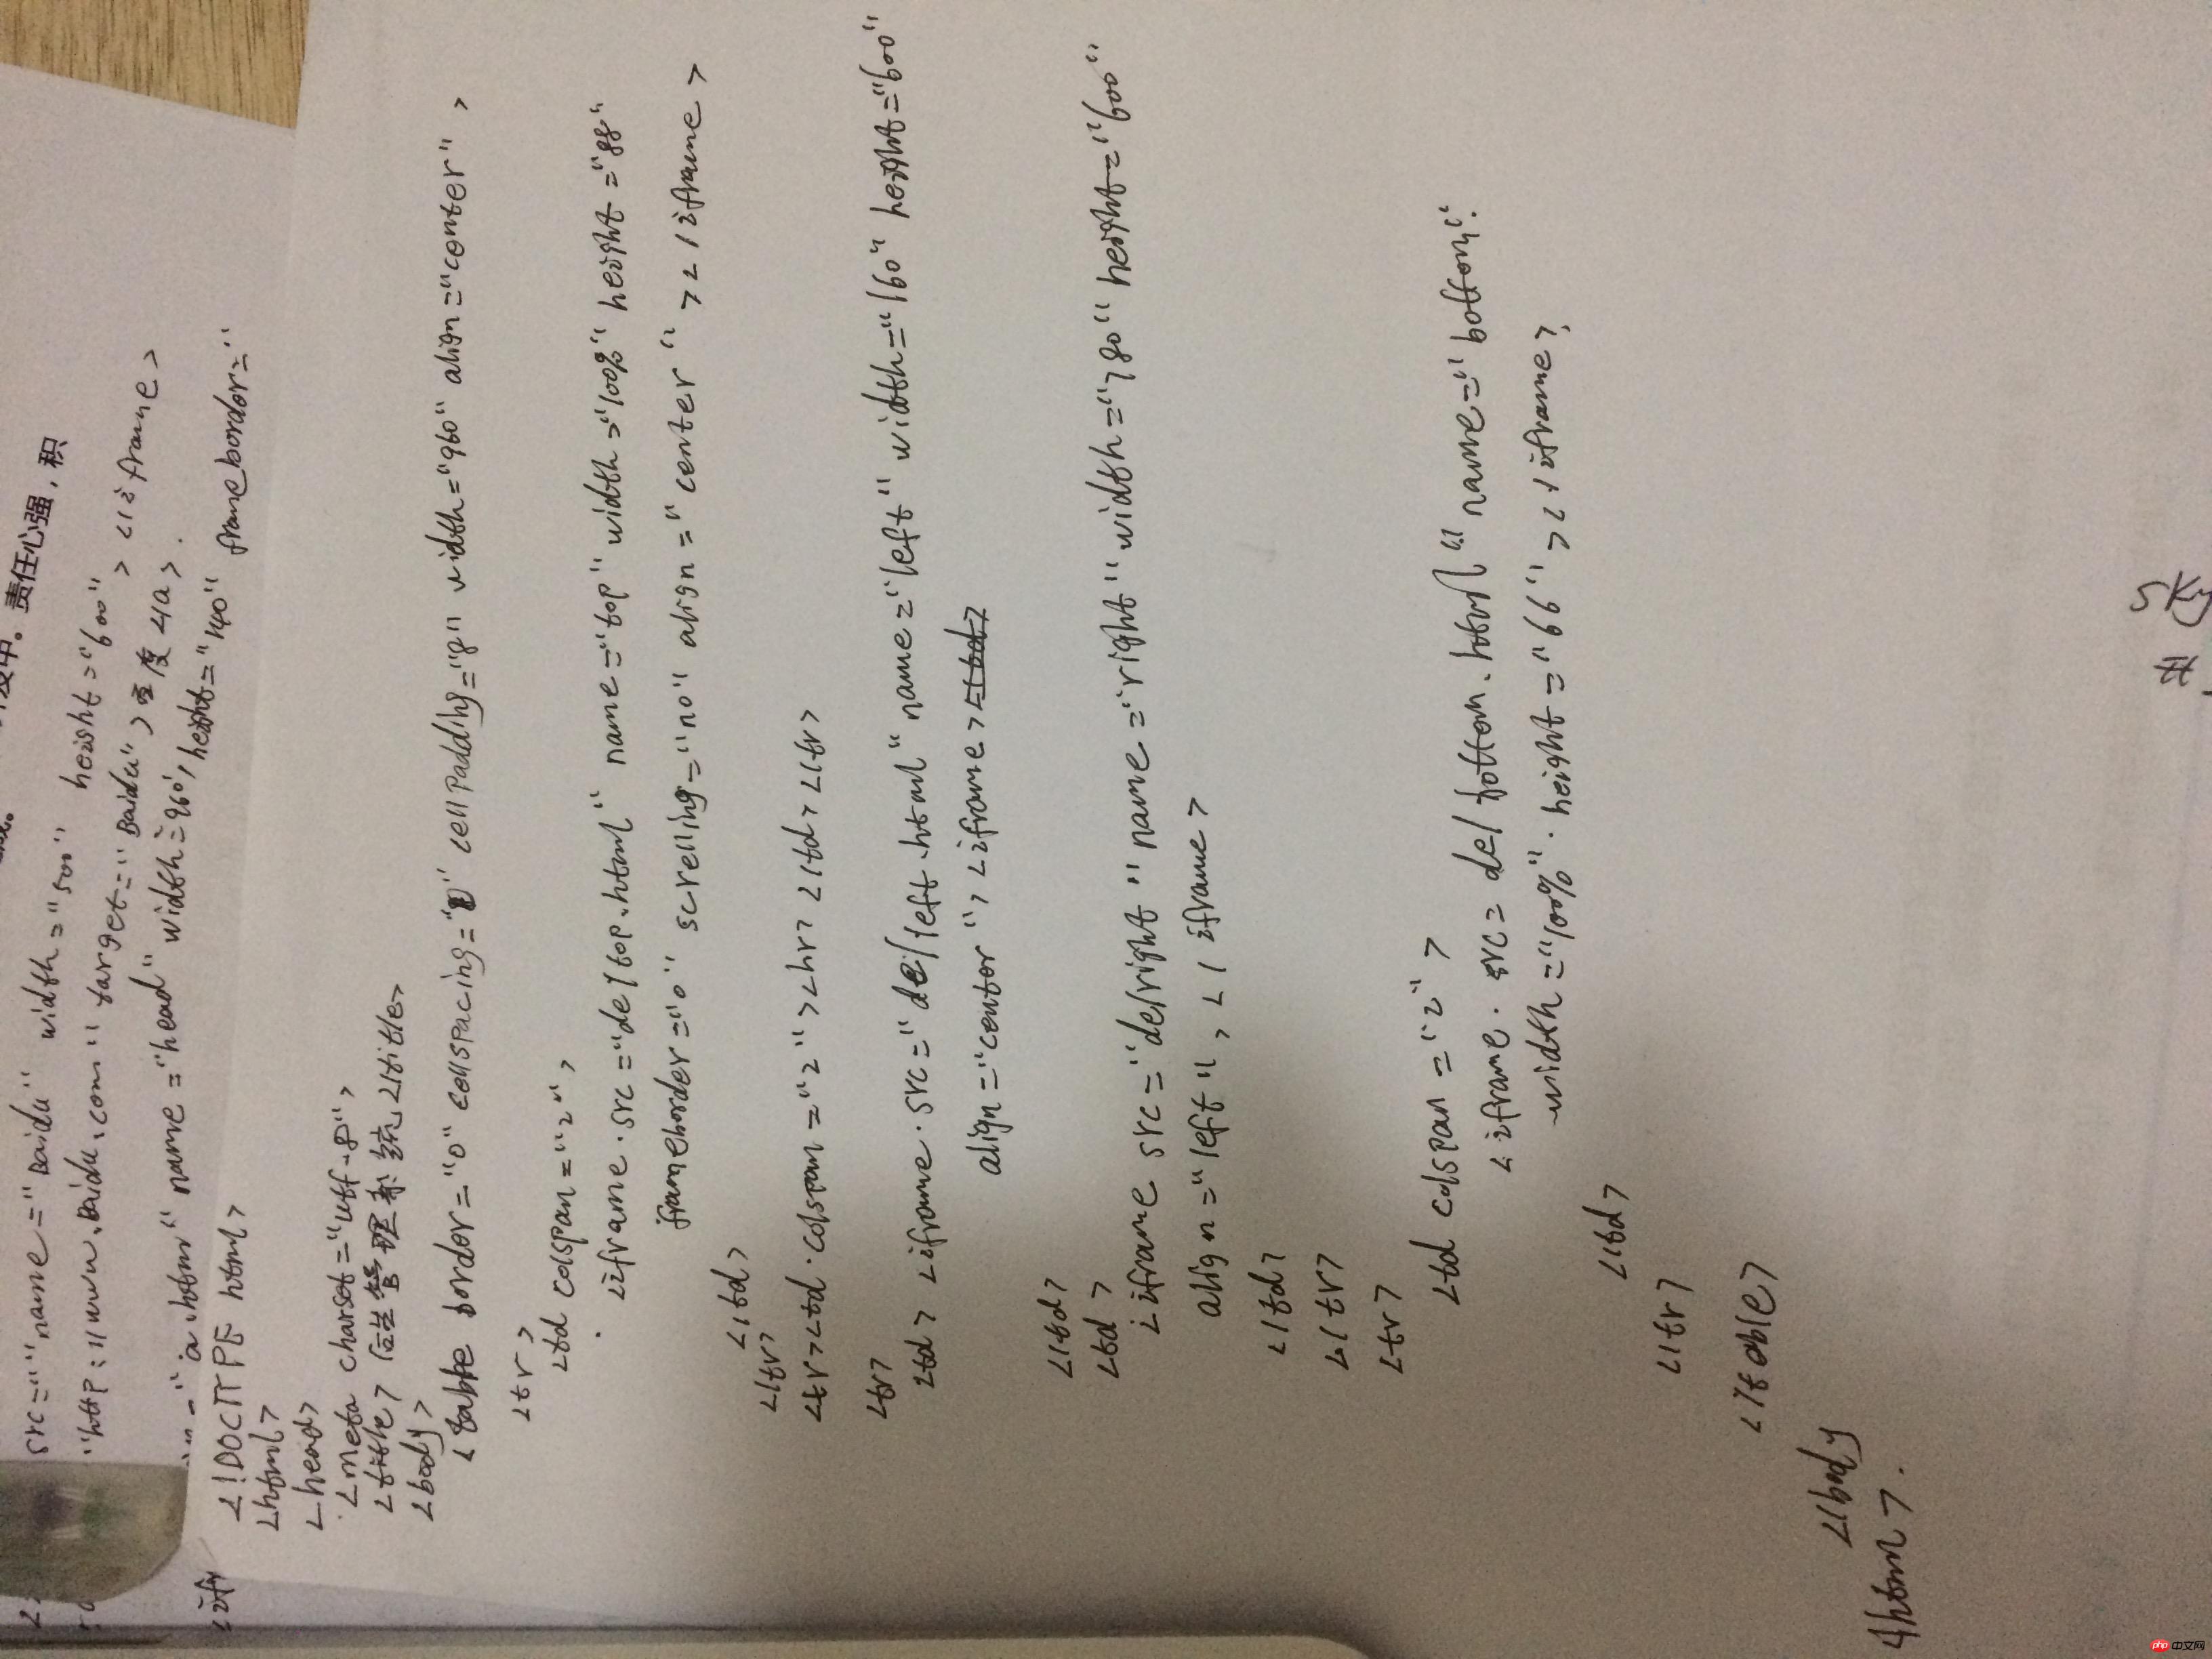 责任心强，积
src="name="Baidu" width="500" height="600"
"http://www.Baidu.com" target="Baidu">百度</a> </iframe>
name="head" width=960', height="140" frameborder="
<ifr
<!DOCTYPE html>
<html>
<head>
<meta charset="utf-8">
<title>后台管理系统</title>
<body>
<table border="0" cellspacing="0" cellpadding="8" width="960" align="center">
<tr>
<td colspan="2">
<iframe src="del/top.html" name="top" width="100%" height="88"
frameborder="0" screlling="no" align="center"></iframe>
</td>
</tr>
<tr><td colspan="2"><hr></td></tr>
<tr>
<td><iframe src="del/left.html" name="left" width="160" height="600"
align="center"><iframe>
</td>
<td>
<iframe src="del/right" name="right" width="780" height="600"
align="left"></iframe>
</td>
</tr>
<tr>
<td colspan="2">
<iframe src=del/bottom.html" name="bottom"
width="100%" height="66"></iframe>
</td>
</tr>
</table>
</body
html>
Sky
#
php 中文网